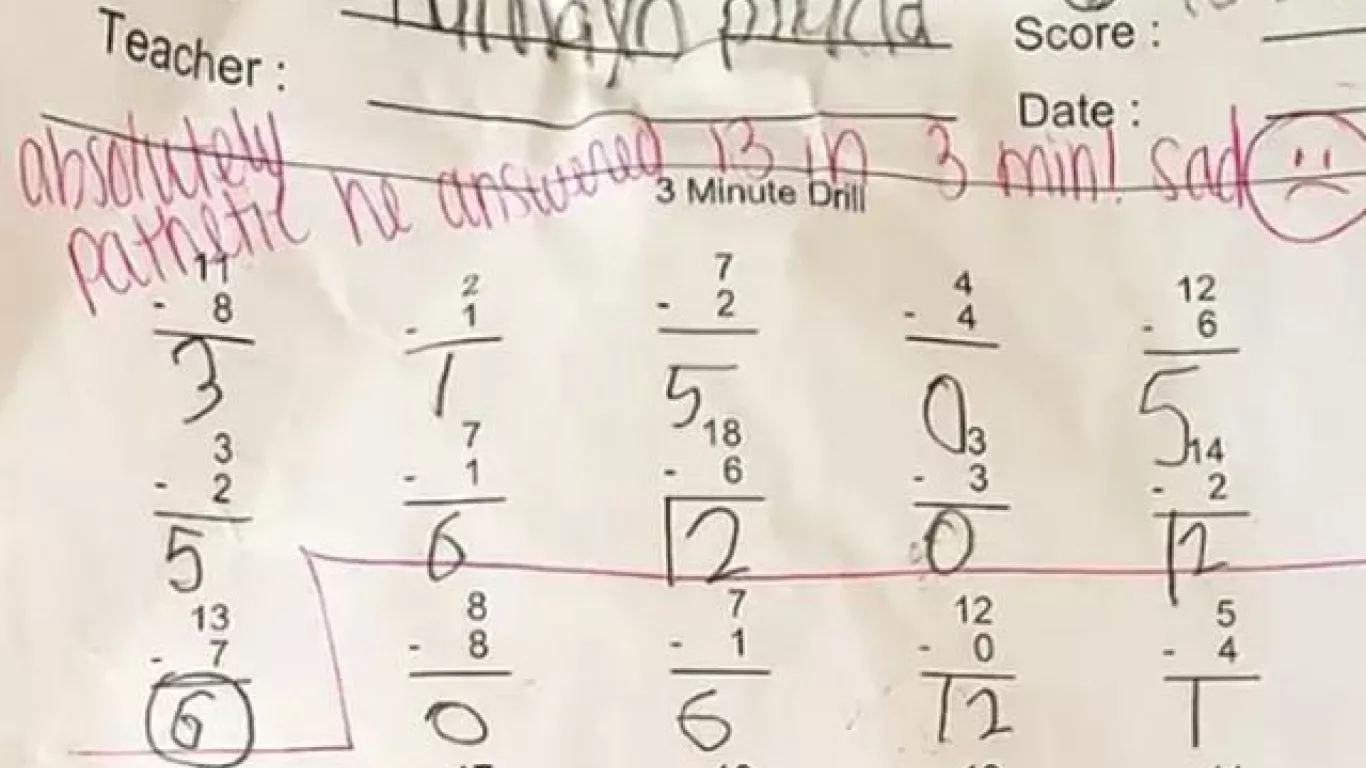 Teacher :
Score :
Date :
absolutely
pathetic he answered 13 in 3 min! sad
3 Minute Drill
11 2 7 4 12
- 8 - 1 - 2 - 4 - 6
3 1 5 0 5
3 7 18 3 14
- 2 - 1 - 6 - 3 - 2
5 6 12 0 12
13 8 7 12 5
- 7 - 8 - 1 - 0 - 4
6 0 6 12 1